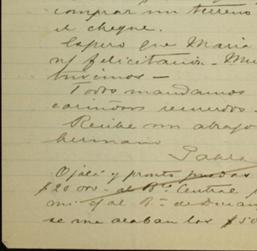 comprar un terreno
el cheque.
Espero que Maria
felicitación -
tuvimos -
Todos mandamos
cariñosos recuerdos -
Recibe un abrazo
hermano
Pablo
Ojalá y pronto puedas
$20 oro - del Bco Central
mi
se me acaban los $50